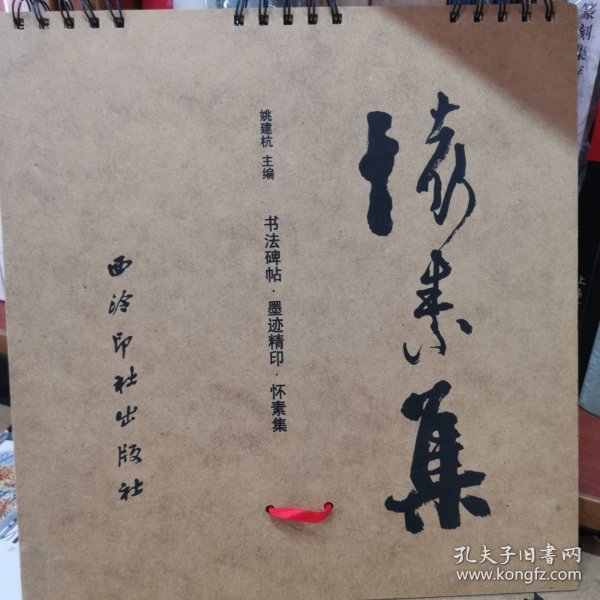 怀素集
姚建杭 主编
书法碑帖·墨迹精印·怀素集
西泠印社出版社
篆刻集
孔夫子旧书网
www.kongfz.com